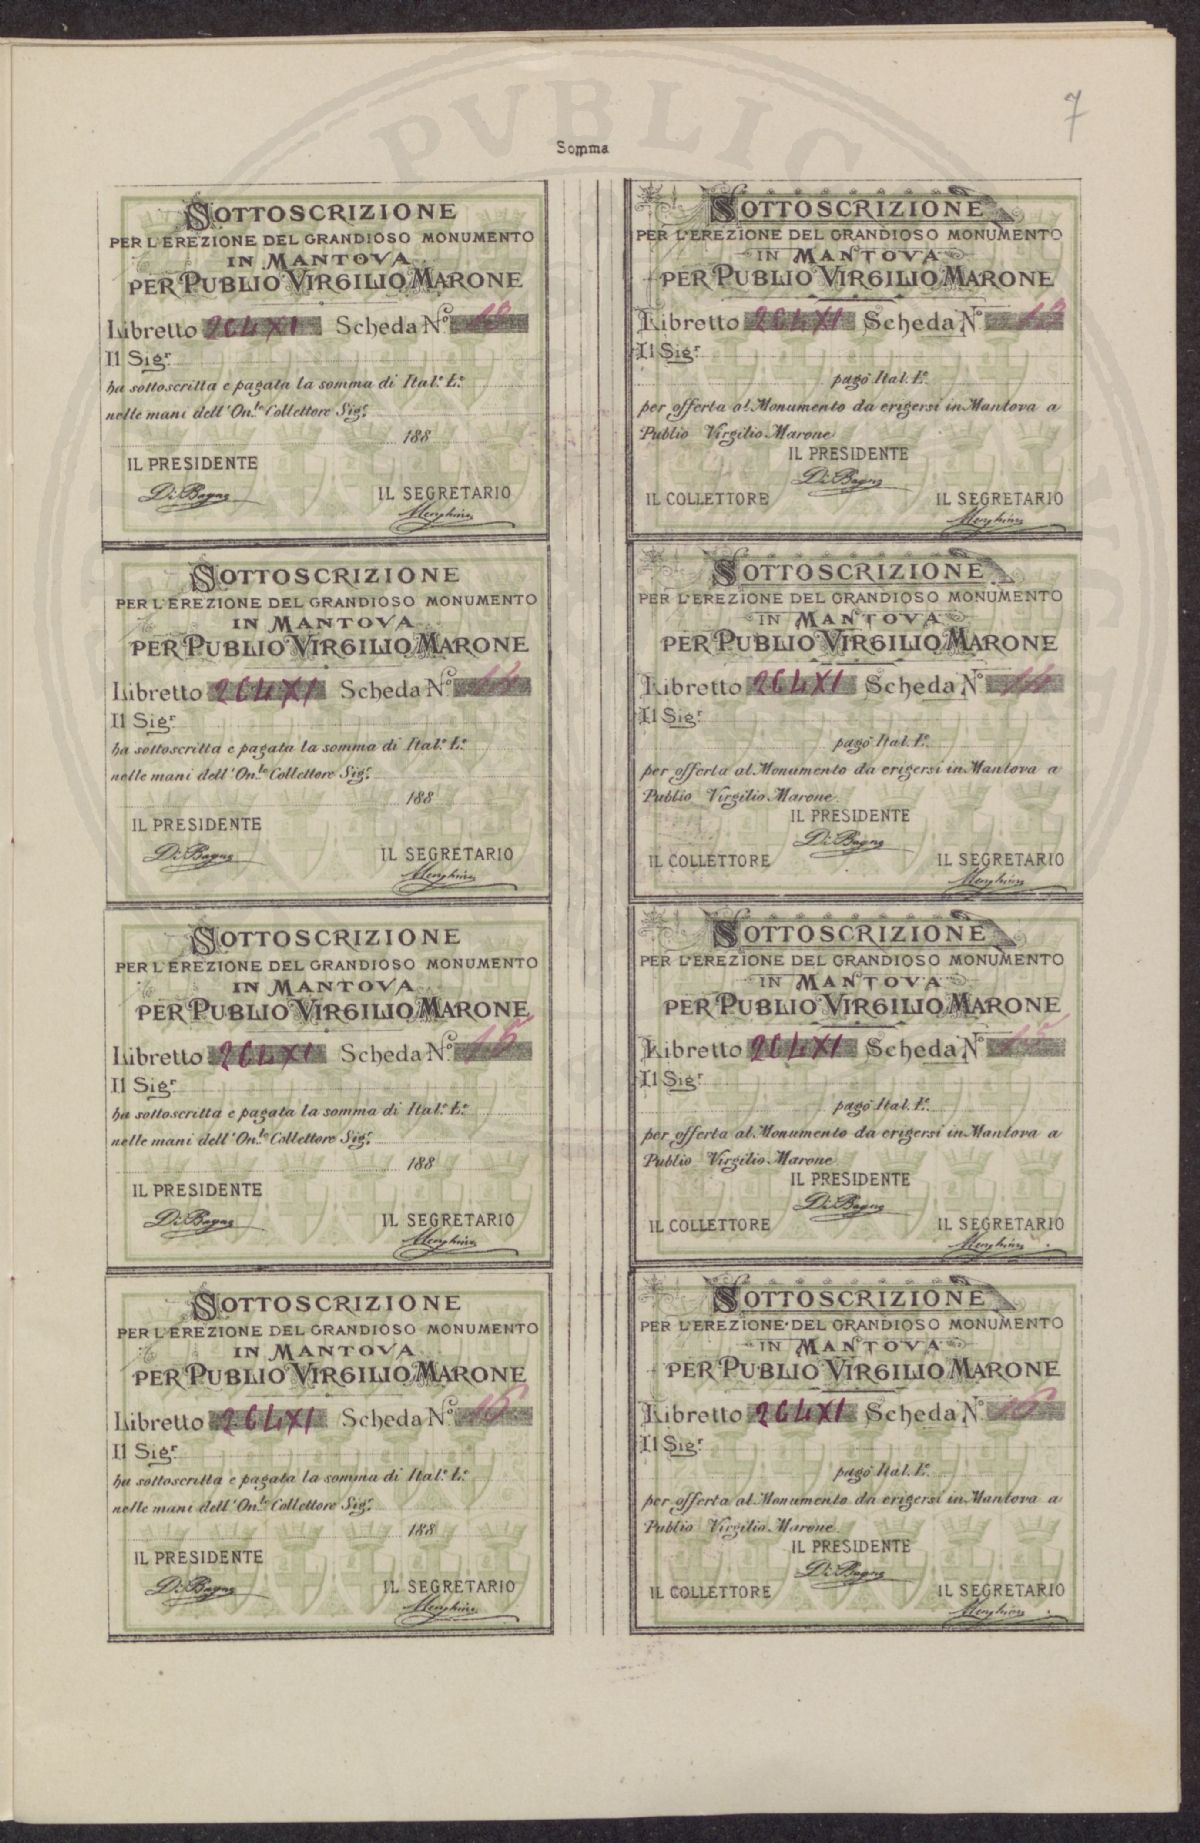 7
Somma
SOTTOSCRIZIONE
PER L'EREZIONE DEL GRANDIOSO MONUMENTO
IN MANTOVA
PER PUBLIO VIRGILIO MARONE
Libretto 264XI Scheda N.º 13
Il Sigr
ha sottoscritta e pagata la somma di Ital.e L.e
nelle mani dell'On.le Collettore Sigr.
188
IL PRESIDENTE
Di Bagno
IL SEGRETARIO
SOTTOSCRIZIONE
PER L'EREZIONE DEL GRANDIOSO MONUMENTO
IN MANTOVA
PER PUBLIO VIRGILIO MARONE
Libretto 264XI Scheda N.º 13
Il Sigr
pagò Ital. L.e
per offerta al Monumento da erigersi in Mantova a
Publio Virgilio Marone
IL PRESIDENTE
Di Bagno
IL COLLETTORE IL SEGRETARIO
SOTTOSCRIZIONE
PER L'EREZIONE DEL GRANDIOSO MONUMENTO
IN MANTOVA
PER PUBLIO VIRGILIO MARONE
Libretto 264XI Scheda N.º 14
Il Sigr
ha sottoscritta e pagata la somma di Ital.e L.e
nelle mani dell'On.le Collettore Sigr.
188
IL PRESIDENTE
Di Bagno
IL SEGRETARIO
SOTTOSCRIZIONE
PER L'EREZIONE DEL GRANDIOSO MONUMENTO
IN MANTOVA
PER PUBLIO VIRGILIO MARONE
Libretto 264XI Scheda N.º 14
Il Sigr
pagò Ital. L.e
per offerta al Monumento da erigersi in Mantova a
Publio Virgilio Marone
IL PRESIDENTE
Di Bagno
IL COLLETTORE IL SEGRETARIO
SOTTOSCRIZIONE
PER L'EREZIONE DEL GRANDIOSO MONUMENTO
IN MANTOVA
PER PUBLIO VIRGILIO MARONE
Libretto 264XI Scheda N.º 15
Il Sigr
ha sottoscritta e pagata la somma di Ital.e L.e
nelle mani dell'On.le Collettore Sigr.
188
IL PRESIDENTE
Di Bagno
IL SEGRETARIO
SOTTOSCRIZIONE
PER L'EREZIONE DEL GRANDIOSO MONUMENTO
IN MANTOVA
PER PUBLIO VIRGILIO MARONE
Libretto 264XI Scheda N.º 15
Il Sigr
pagò Ital. L.e
per offerta al Monumento da erigersi in Mantova a
Publio Virgilio Marone
IL PRESIDENTE
Di Bagno
IL COLLETTORE IL SEGRETARIO
SOTTOSCRIZIONE
PER L'EREZIONE DEL GRANDIOSO MONUMENTO
IN MANTOVA
PER PUBLIO VIRGILIO MARONE
Libretto 264XI Scheda N.º 16
Il Sigr
ha sottoscritta e pagata la somma di Ital.e L.e
nelle mani dell'On.le Collettore Sigr.
188
IL PRESIDENTE
Di Bagno
IL SEGRETARIO
SOTTOSCRIZIONE
PER L'EREZIONE DEL GRANDIOSO MONUMENTO
IN MANTOVA
PER PUBLIO VIRGILIO MARONE
Libretto 264XI Scheda N.º 16
Il Sigr
pagò Ital. L.e
per offerta al Monumento da erigersi in Mantova a
Publio Virgilio Marone
IL PRESIDENTE
Di Bagno
IL COLLETTORE IL SEGRETARIO